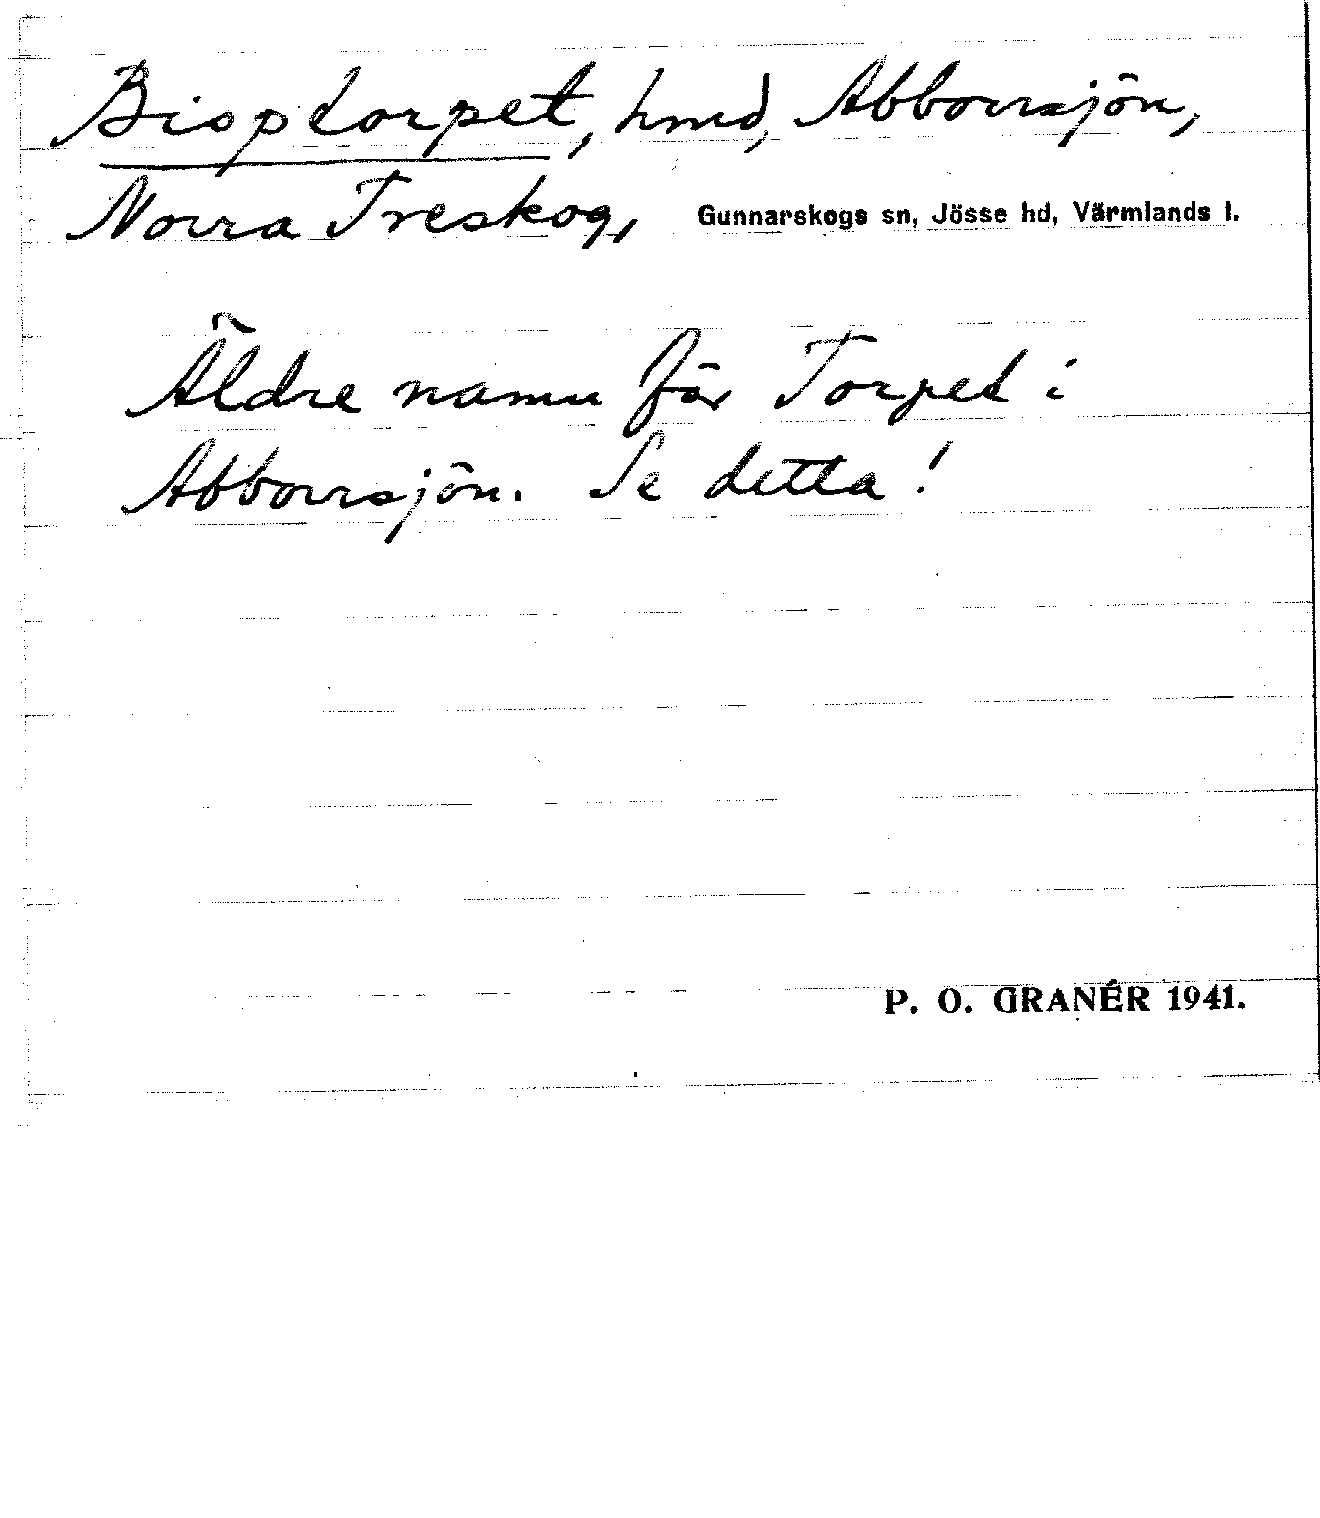 Bisptorpet, hmd, Abborrsjön,
Norra Treskog, Gunnarskogs sn, Jösse hd, Värmlands l.
Äldre namn för Torpet i
Abborrsjön. Se detta!
P. O. GRANÉR 1941.